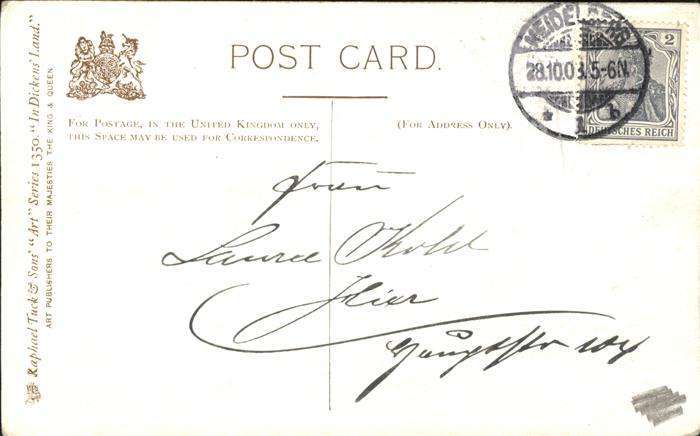 POST CARD.
FOR POSTAGE, IN THE UNITED KINGDOM ONLY,
THIS SPACE MAY BE USED FOR CORRESPONDENCE.
(FOR ADDRESS ONLY).
HEIDELBERG
28.10.03. 5-6N.
2
DEUTSCHES REICH
Frau
Laura Kold
Hier
Hauptstr
Raphael Tuck & Sons' "Art" Series 1350. "In Dickens' Land."
ART PUBLISHERS TO THEIR MAJESTIES THE KING & QUEEN